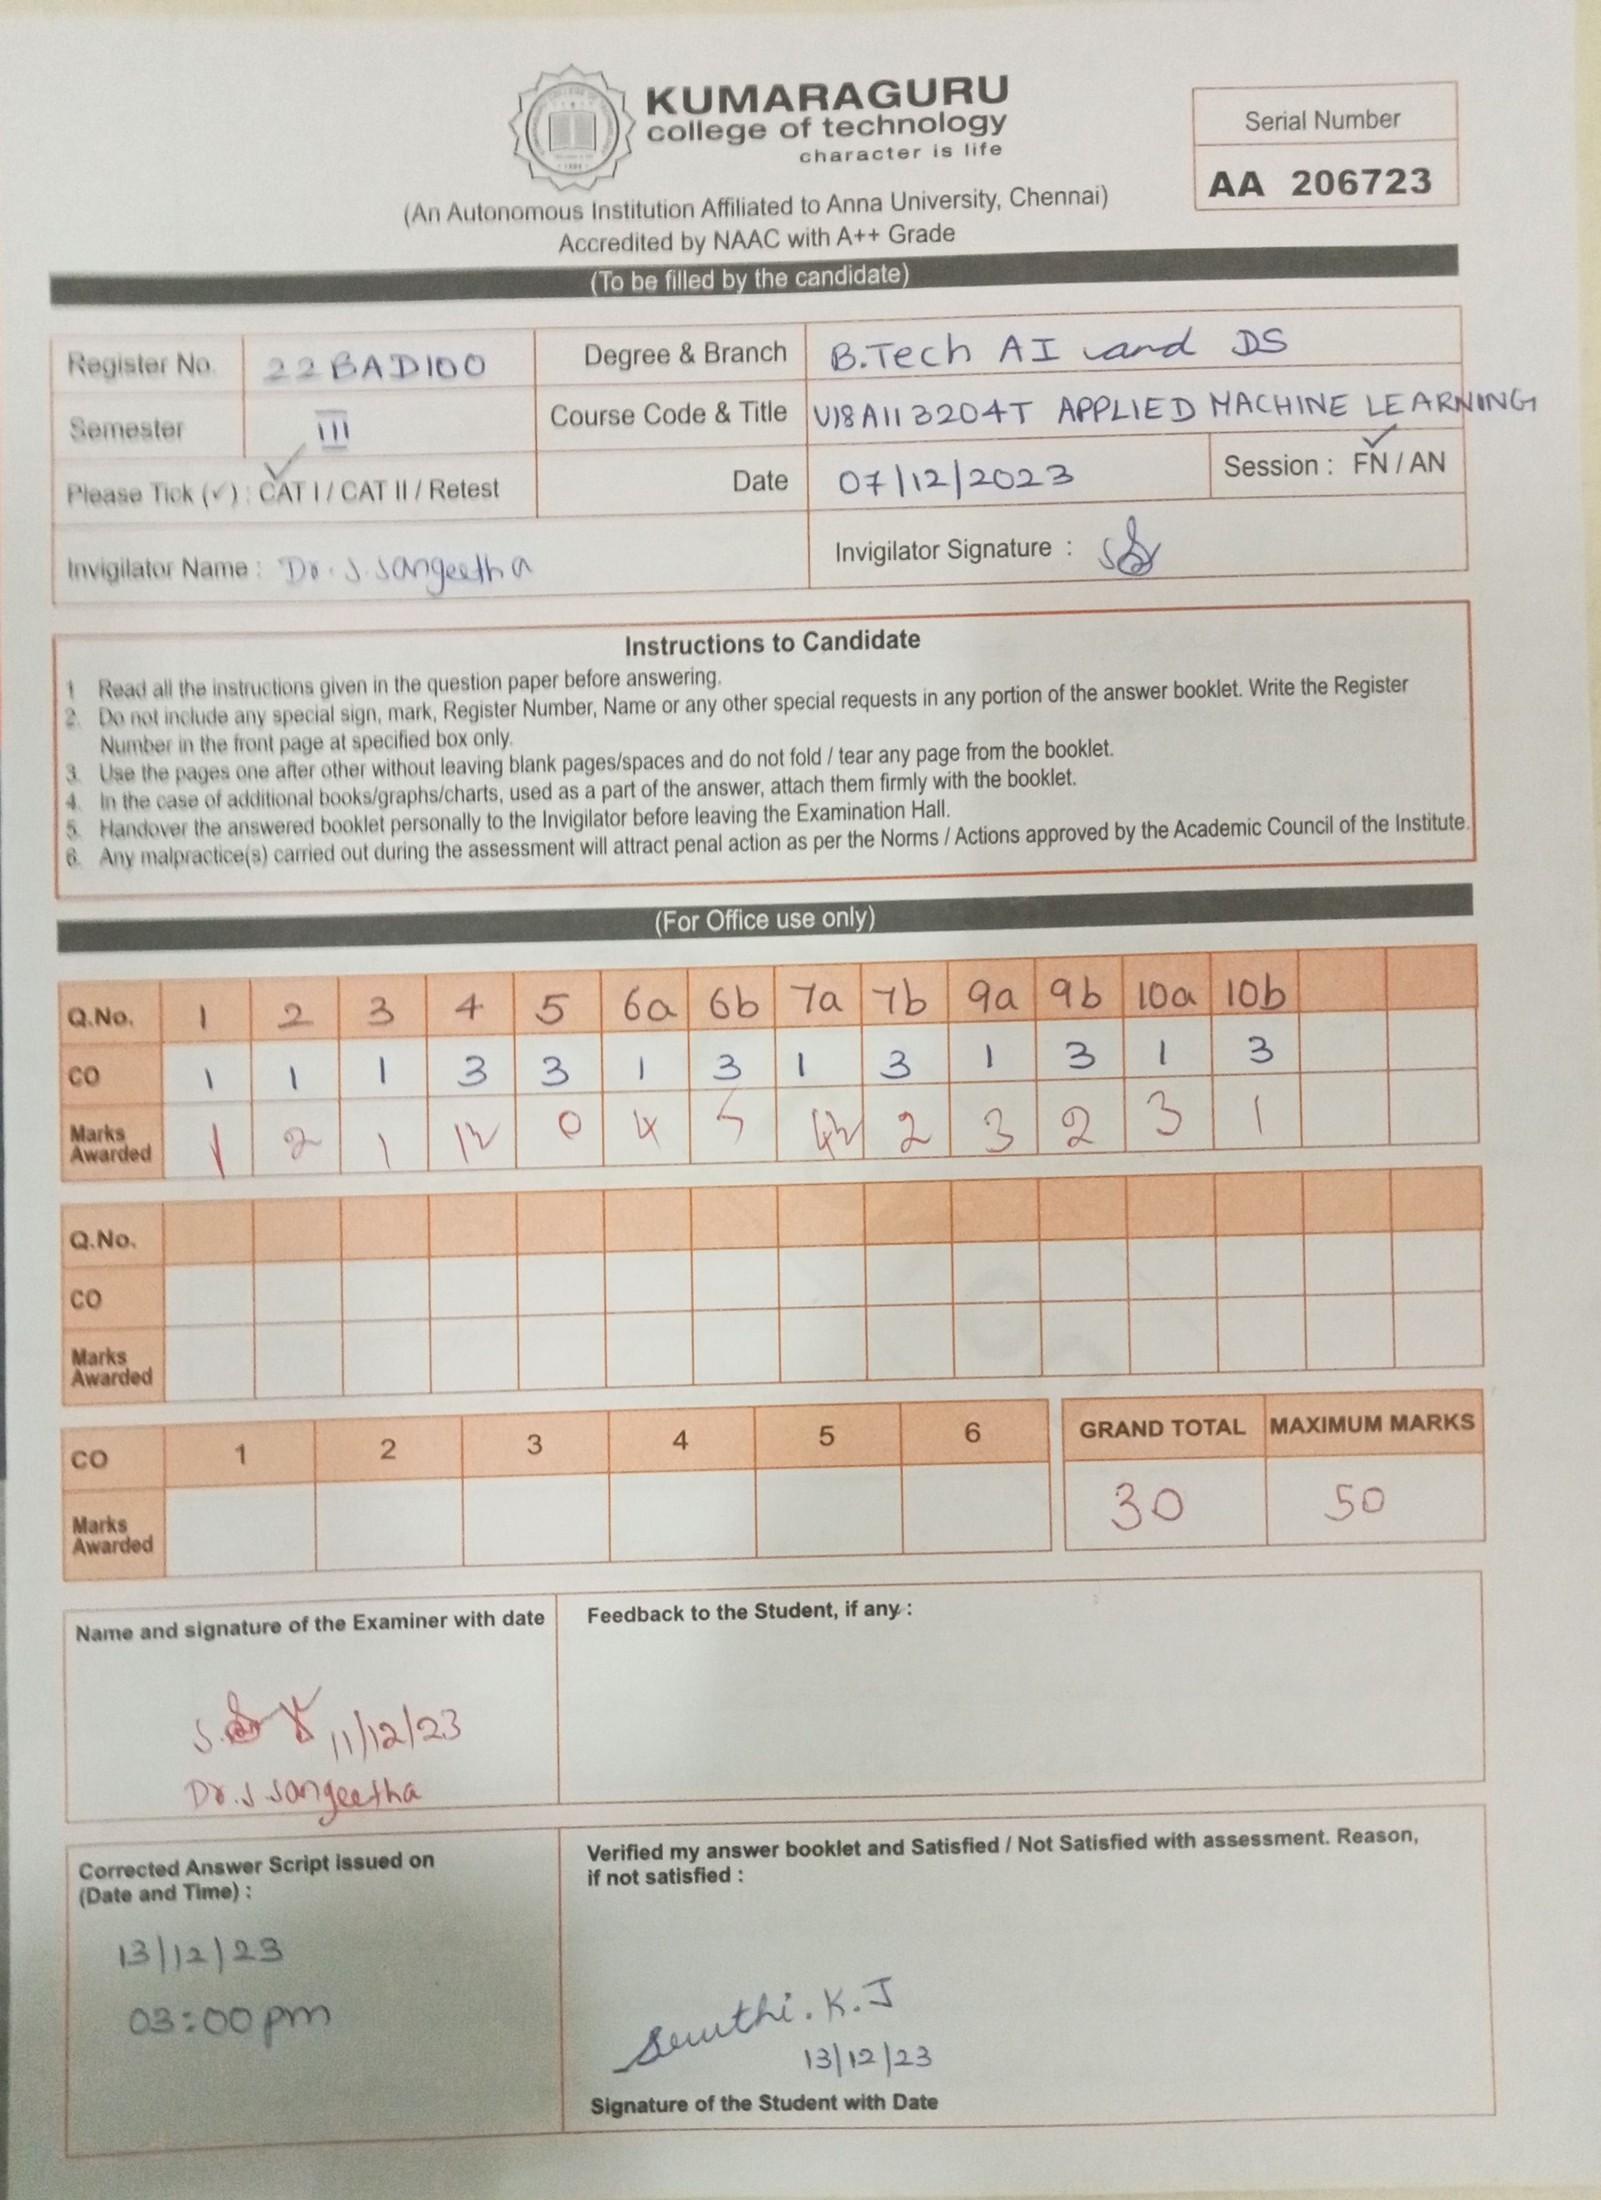 KUMARAGURU
college of technology
character is life
Serial Number
AA 206723
(An Autonomous Institution Affiliated to Anna University, Chennai)
Accredited by NAAC with A++ Grade
(To be filled by the candidate)
Register No. 22BAD100 Degree & Branch B.Tech AI and DS
Semester III Course Code & Title U18AII3204T APPLIED MACHINE LEARNING
Please Tick (✓) : CAT I / CAT II / Retest Date 07/12/2023 Session : FN / AN
Invigilator Name : Dr. S. Sangeetha Invigilator Signature :
Instructions to Candidate
1 Read all the instructions given in the question paper before answering.
2. Do not include any special sign, mark, Register Number, Name or any other special requests in any portion of the answer booklet. Write the Register
Number in the front page at specified box only.
3. Use the pages one after other without leaving blank pages/spaces and do not fold / tear any page from the booklet.
4. In the case of additional books/graphs/charts, used as a part of the answer, attach them firmly with the booklet.
5. Handover the answered booklet personally to the Invigilator before leaving the Examination Hall.
6. Any malpractice(s) carried out during the assessment will attract penal action as per the Norms / Actions approved by the Academic Council of the Institute.
(For Office use only)
Q.No. 1 2 3 4 5 6a 6b 7a 7b 9a 9b 10a 10b
CO 1 1 1 3 3 1 3 1 3 1 3 1 3
Marks
Awarded 1 2 1 0 4 5 2 3 2 3 1
Q.No.
CO
Marks
Awarded
CO 1 2 3 4 5 6 GRAND TOTAL MAXIMUM MARKS
Marks
Awarded 30 50
Name and signature of the Examiner with date
Feedback to the Student, if any :
11/12/23
Dr. S Sangeetha
Corrected Answer Script issued on
(Date and Time) :
13/12/23
03:00 pm
Verified my answer booklet and Satisfied / Not Satisfied with assessment. Reason,
if not satisfied :
Sruthi. K. J
13/12/23
Signature of the Student with Date